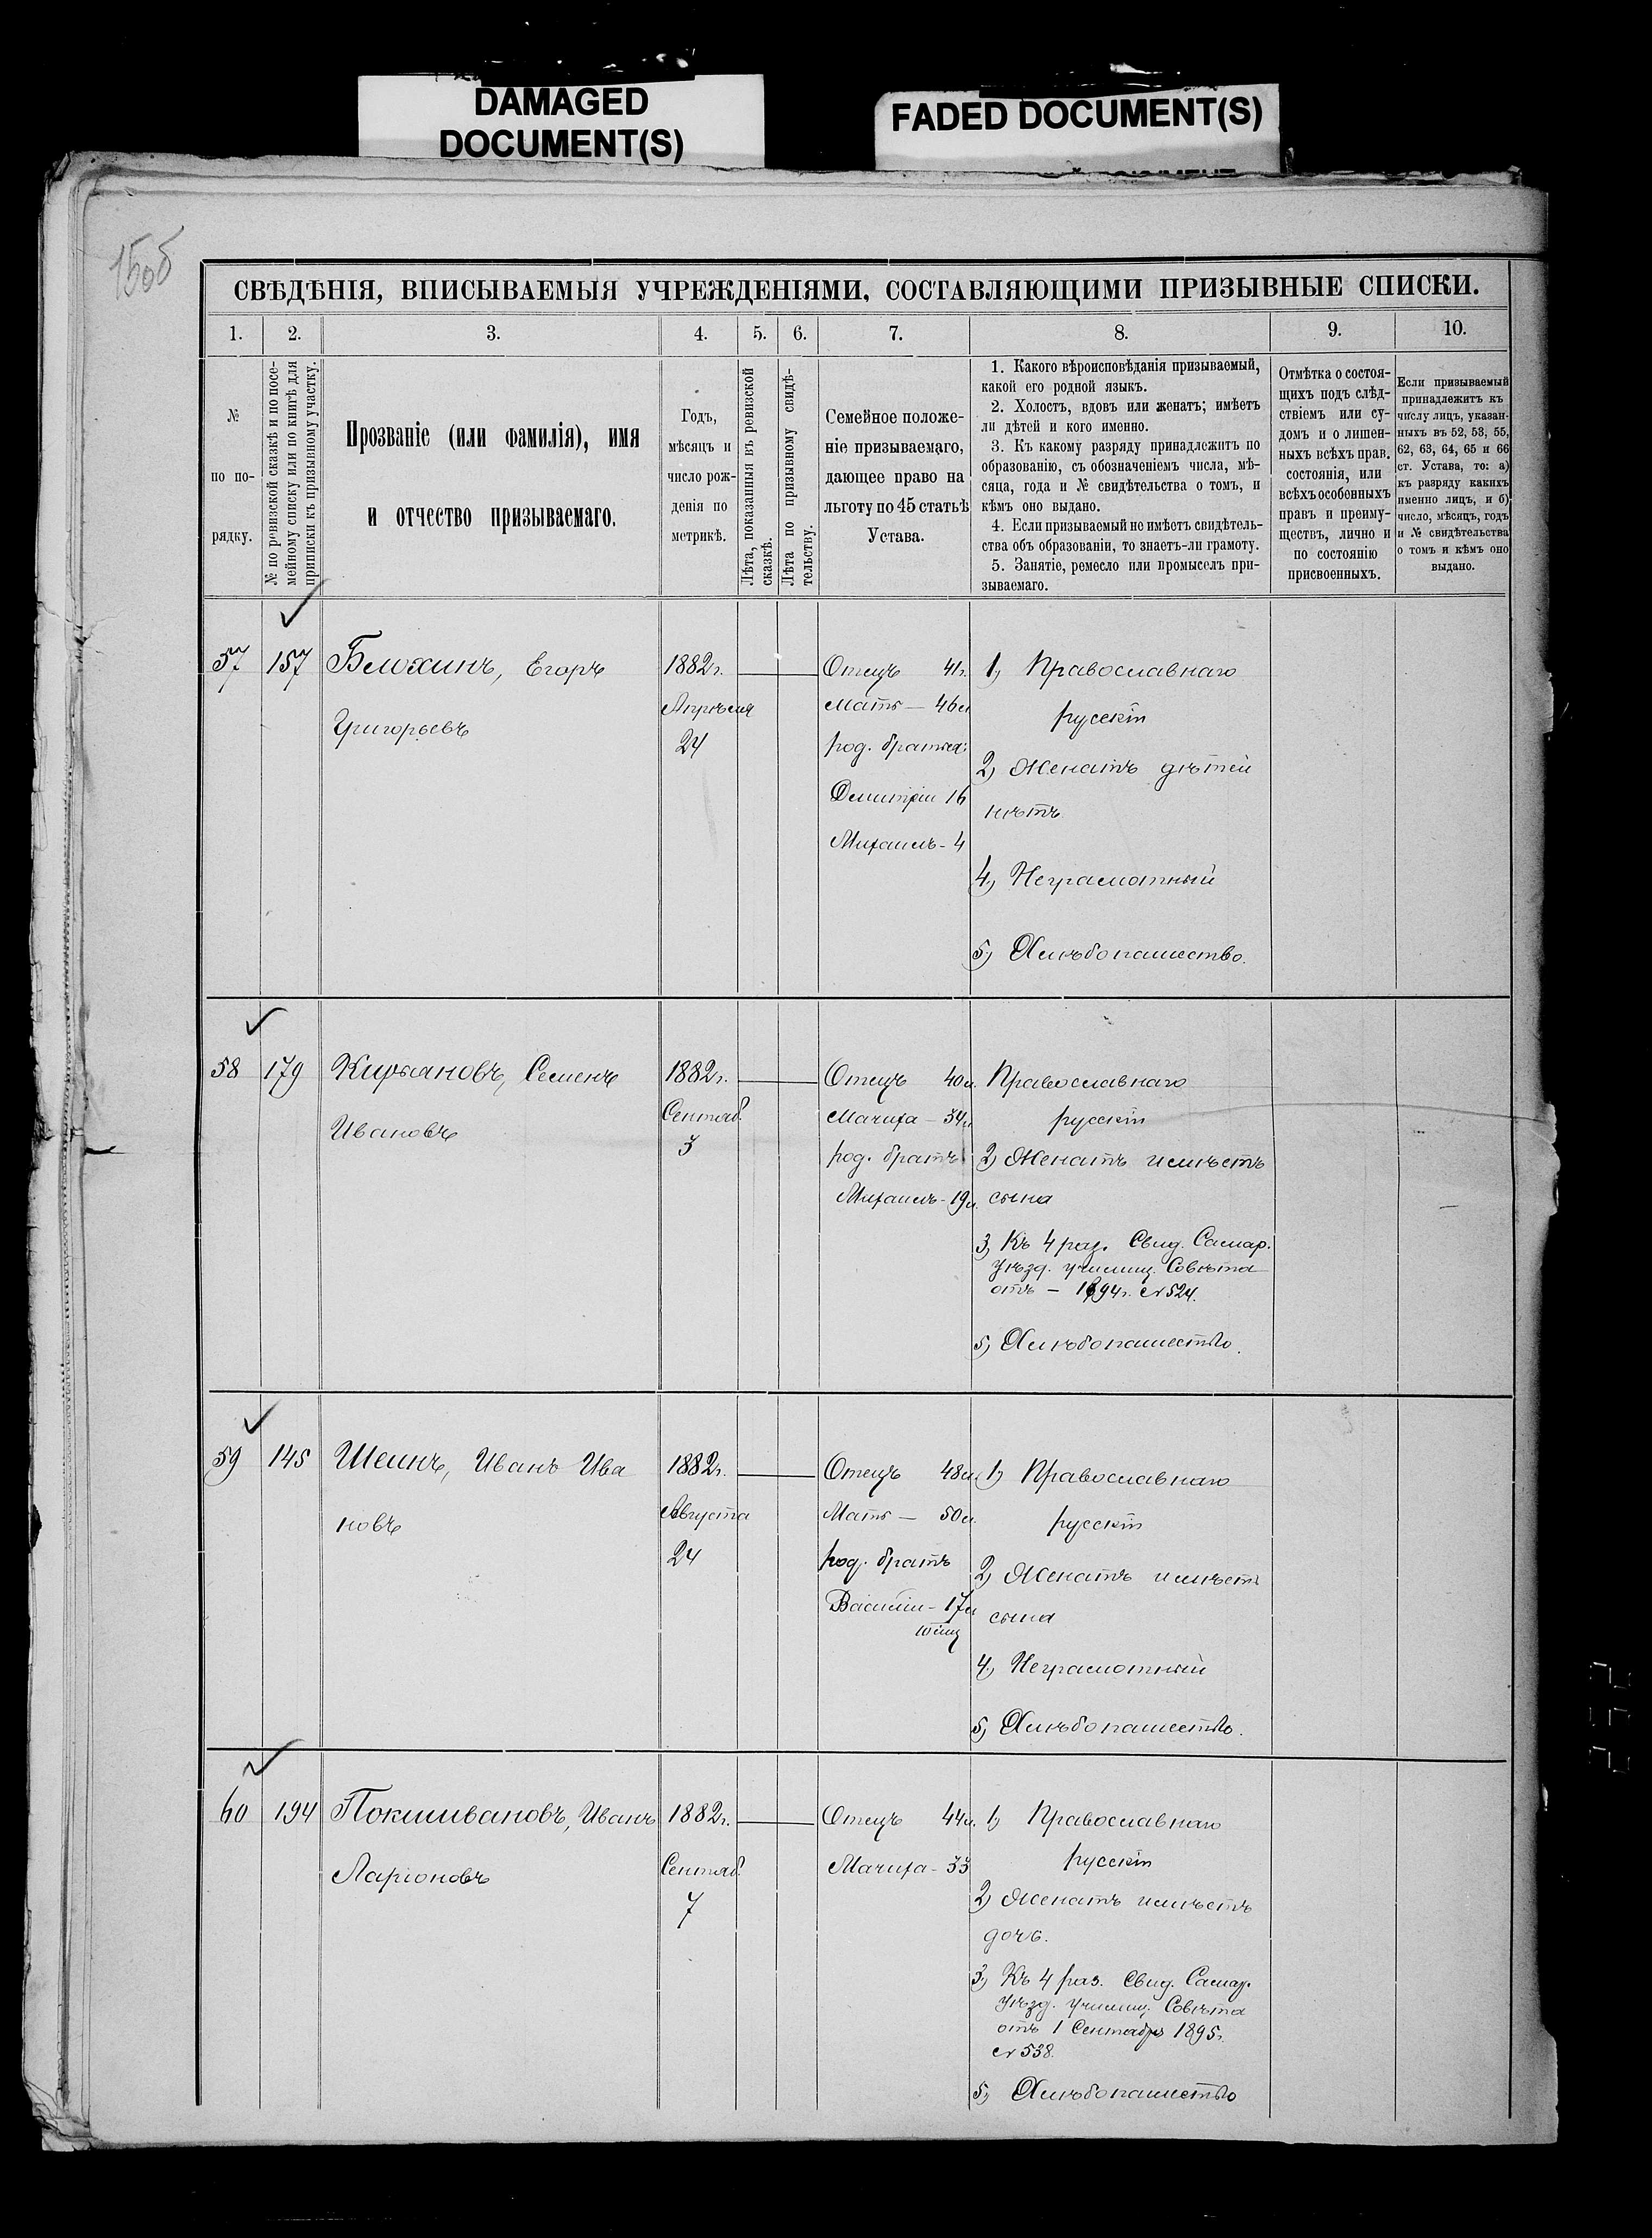 DAMAGED
DOCUMENT(S)
FADED DOCUMENT(S)
150б
СВѢДѢНІЯ, ВПИСЫВАЕМЫЯ УЧРЕЖДЕНІЯМИ, СОСТАВЛЯЮЩИМИ ПРИЗЫВНЫЕ СПИСКИ.
1. 2. 3. 4. 5. 6. 7. 8. 9. 10.
№
по по-
рядку.
№ по ревизской сказкѣ и по посе-
мейному списку или по книгѣ для
приписки къ призывному участку.
Прозваніе (или фамилія), имя
и отчество призываемаго.
Годъ,
мѣсяцъ и
число рож-
денія по
метрикѣ.
Лѣта, показанныя въ ревизской
сказкѣ.
Лѣта по призывному свидѣ-
тельству.
Семейное положе-
ніе призываемаго,
дающее право на
льготу по 45 статьѣ
Устава.
1. Какого вѣроисповѣданія призываемый,
какой его родной языкъ.
2. Холостъ, вдовъ или женатъ; имѣетъ
ли дѣтей и кого именно.
3. Къ какому разряду принадлежитъ по
образованію, съ обозначеніемъ числа, мѣ-
сяца, года и № свидѣтельства о томъ, и
кѣмъ оно выдано.
4. Если призываемый не имѣетъ свидѣтель-
ства объ образованіи, то знаетъ-ли грамоту.
5. Занятіе, ремесло или промыселъ при-
зываемаго.
Отмѣтка о состоя-
щихъ подъ слѣд-
ствіемъ или су-
домъ и о лишен-
ныхъ всѣхъ прав.
состоянія, или
всѣхъ особенныхъ
правъ и преиму-
ществъ, лично и
по состоянію
присвоенныхъ.
Если призываемый
принадлежитъ къ
числу лицъ, указан-
ныхъ въ 52, 53, 55,
62, 63, 64, 65 и 66
ст. Устава, то: а)
къ разряду какихъ
именно лицъ, и б)
число, мѣсяцъ, годъ
и № свидѣтельства
о томъ и кѣмъ оно
выдано.
57 157 Блохинъ, Егоръ
Григорьевъ
1882г.
Апрѣля
24
Отецъ 41г.
Мать — 46л
род. братья:
Димитрій 16
Михаилъ - 4
1) Православнаго
русскій
2) Женатъ дѣтей
нѣтъ
4) Неграмотный
5) Хлѣбопашество.
58 179 Кирьяновъ, Семенъ
Ивановъ
1882г.
Сентяб.
3
Отецъ 40л.
Мачиха — 34л
род. братъ
Михаилъ - 19л.
Православнаго
русскій
2) Женатъ имѣетъ
сына
3) Къ 4 раз. Свид. Самар.
Уѣзд. Училищ. Совѣта
отъ — 1894г. № 524.
5) Хлѣбопашество.
59 145 Шеинъ, Иванъ Ива
новъ
1882г.
Августа
24
Отецъ 48л
Мать — 50л.
род. братъ
Василій - 17л
1) Православнаго
русскій
2) Женатъ имѣетъ
сына
4) Неграмотный
5) Хлѣбопашество.
60 194 Покшивановъ, Иванъ
Ларіоновъ
1882г.
Сентяб.
7
Отецъ 44л.
Мачиха - 33
1) Православнаго
русскій
2) Женатъ имѣетъ
дочь.
3) Къ 4 раз. Свид. Самар.
Уѣзд. Училищ. Совѣта
отъ 1 Сентября 1895г.
№ 538.
5) Хлѣбопашество